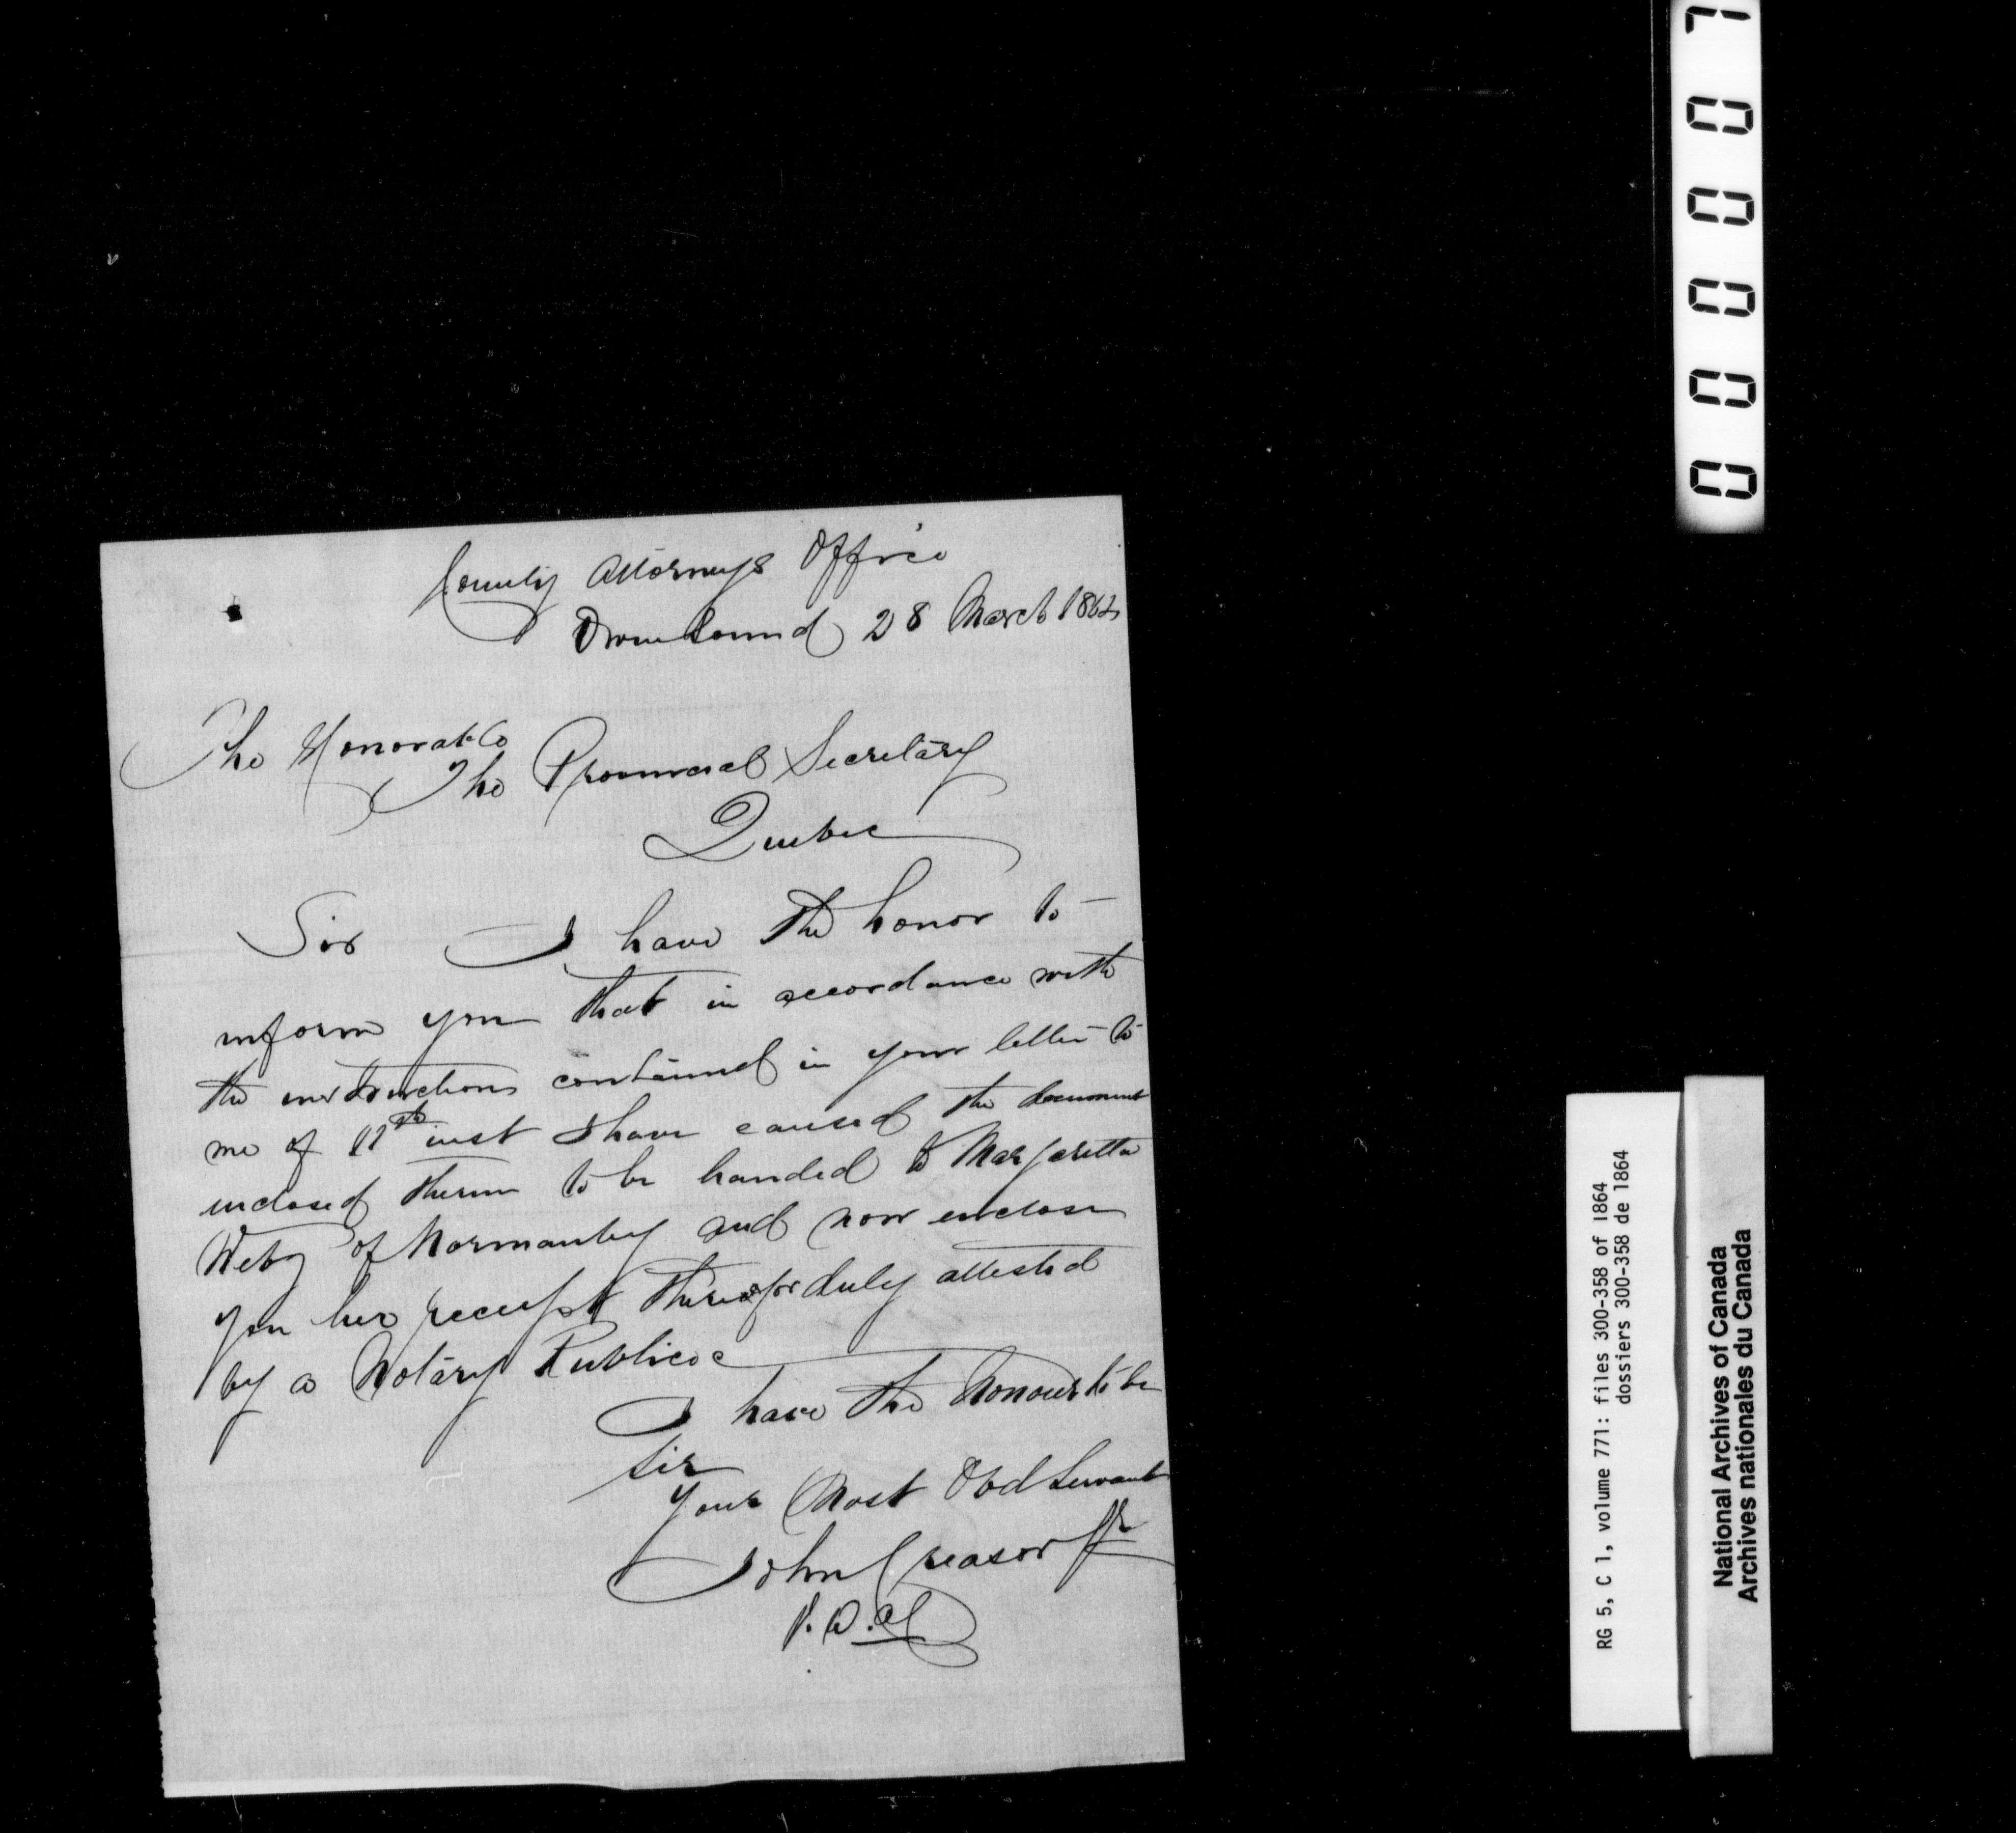 County Attorneys Office
Owen Sound 28 March 1864
The Honorable
The Provincial Secretary
Quebec
Sir I have the honor to
inform you that in accordance with
the instructions contained in your letter to
me of 11th inst I have caused the document
enclosed therein to be handed to Margaretta
of Normanby and now enclose
you her receipt therefor duly attested
by a Notary Public
I have the honour to be
Sir
Your Most Obd Servant
John Creasor Jr
C.A.
000007
RG 5, C 1, volume 771: files 300-358 of 1864
dossiers 300-358 de 1864
National Archives of Canada
Archives nationales du Canada